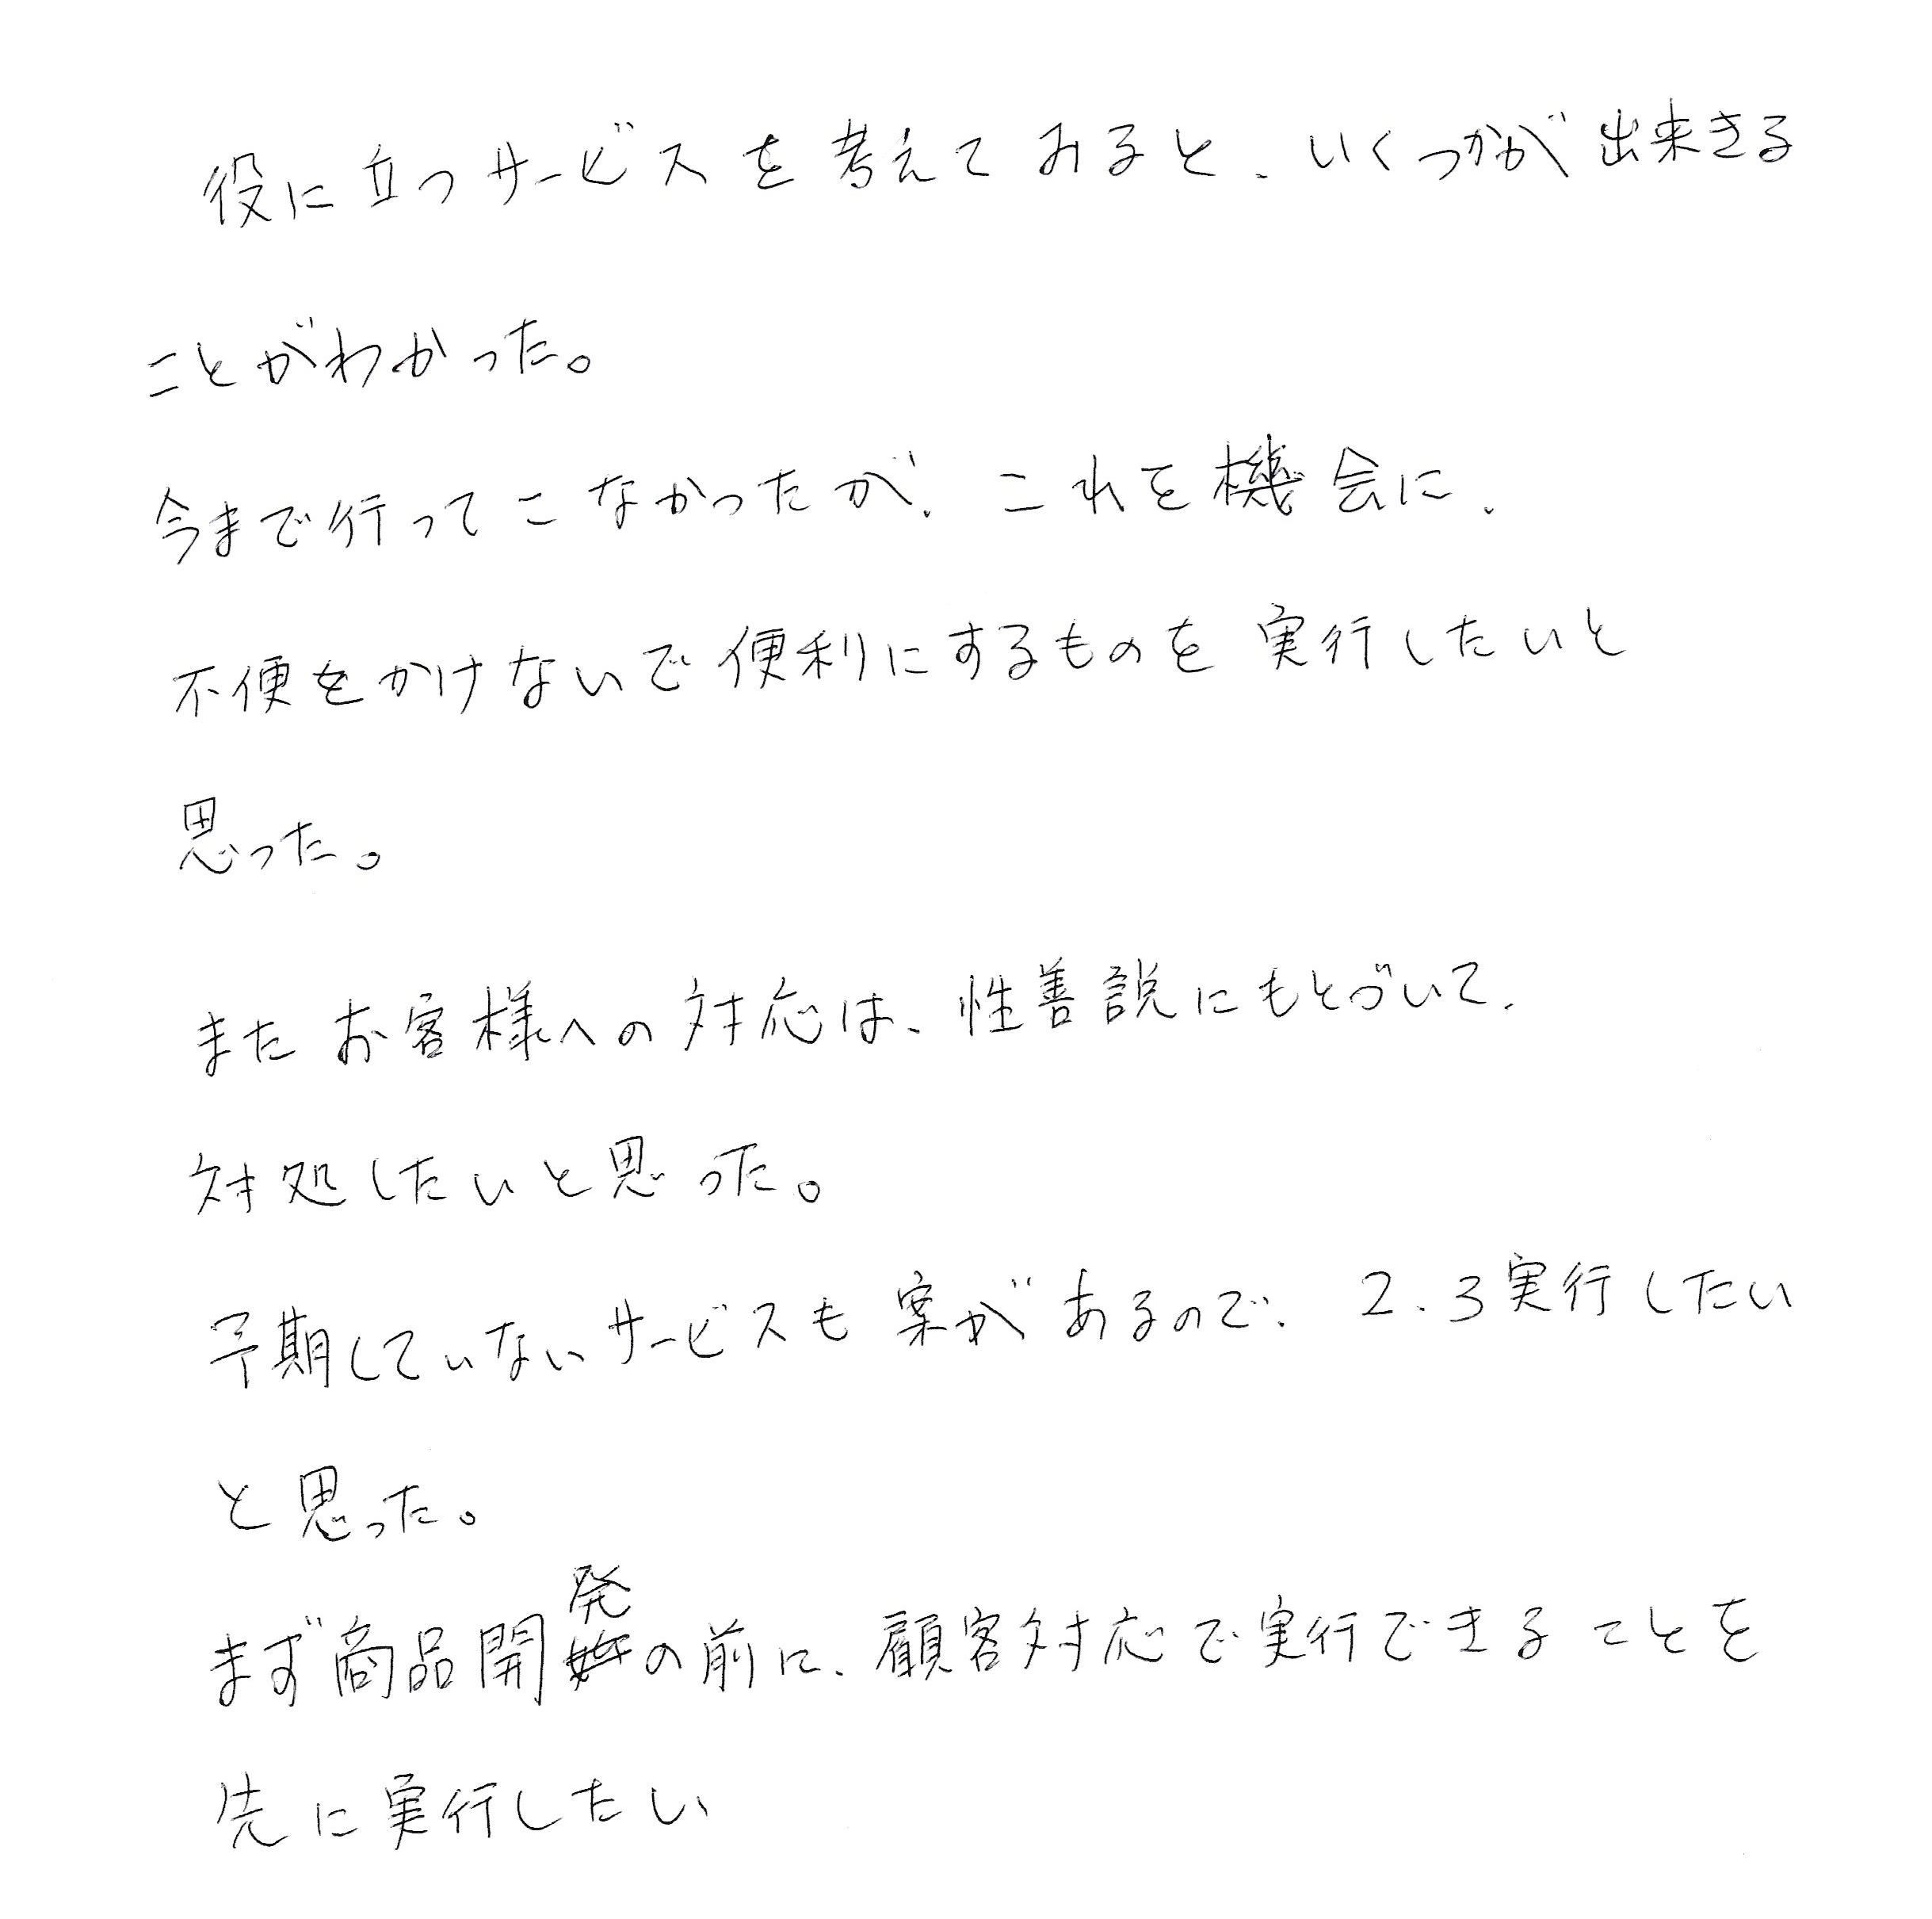 役に立つサービスを考えてみると、いくつかが出来きる
ことがわかった。
今まで行ってこなかったが、これを機会に、
不便をかけないで便利にするものを実行したいと
思った。
またお客様への対応は、性善説にもとづいて、
対処したいと思った。
予期していないサービスも案があるので、2、3実行したい
と思った。
まず商品開発の前に、顧客対応で実行できることを
先に実行したい